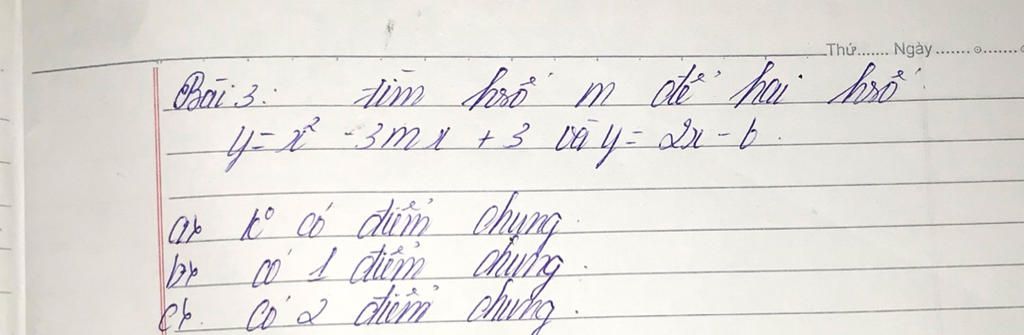 Thứ....... Ngày ....... o.......
Bài 3: tìm hsố m để hai hsố
y = x² - 3mx + 3 và y = 2x - 6.
a, k° có điểm chung.
b, có 1 điểm chung.
c, có 2 điểm chung.